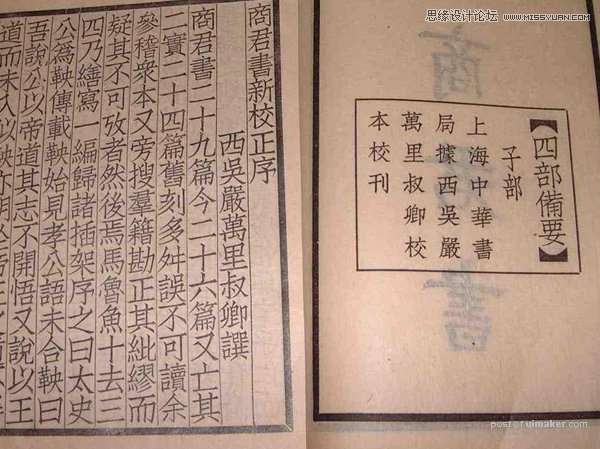 思缘设计论坛 WWW.MISSYUAN.COM
【四部備要】
子部
上海中華書
局據西吳嚴
萬里叔卿校
本校刊
商君書新校正序
西吳嚴萬里叔卿譔
商君書二十九篇今二十六篇又亡其
一實二十四篇舊刻多舛誤不可讀余
參稽衆本又旁搜羣籍勘正其紕繆而
疑其不可攷者然後焉馬魯魚十去三
四乃繕寫一編歸諸插架序之曰太史
公為鞅傳載鞅始見孝公語未合鞅曰
吾說公以帝道其志不開悟又說以王
道而未入
post of uimaker.com